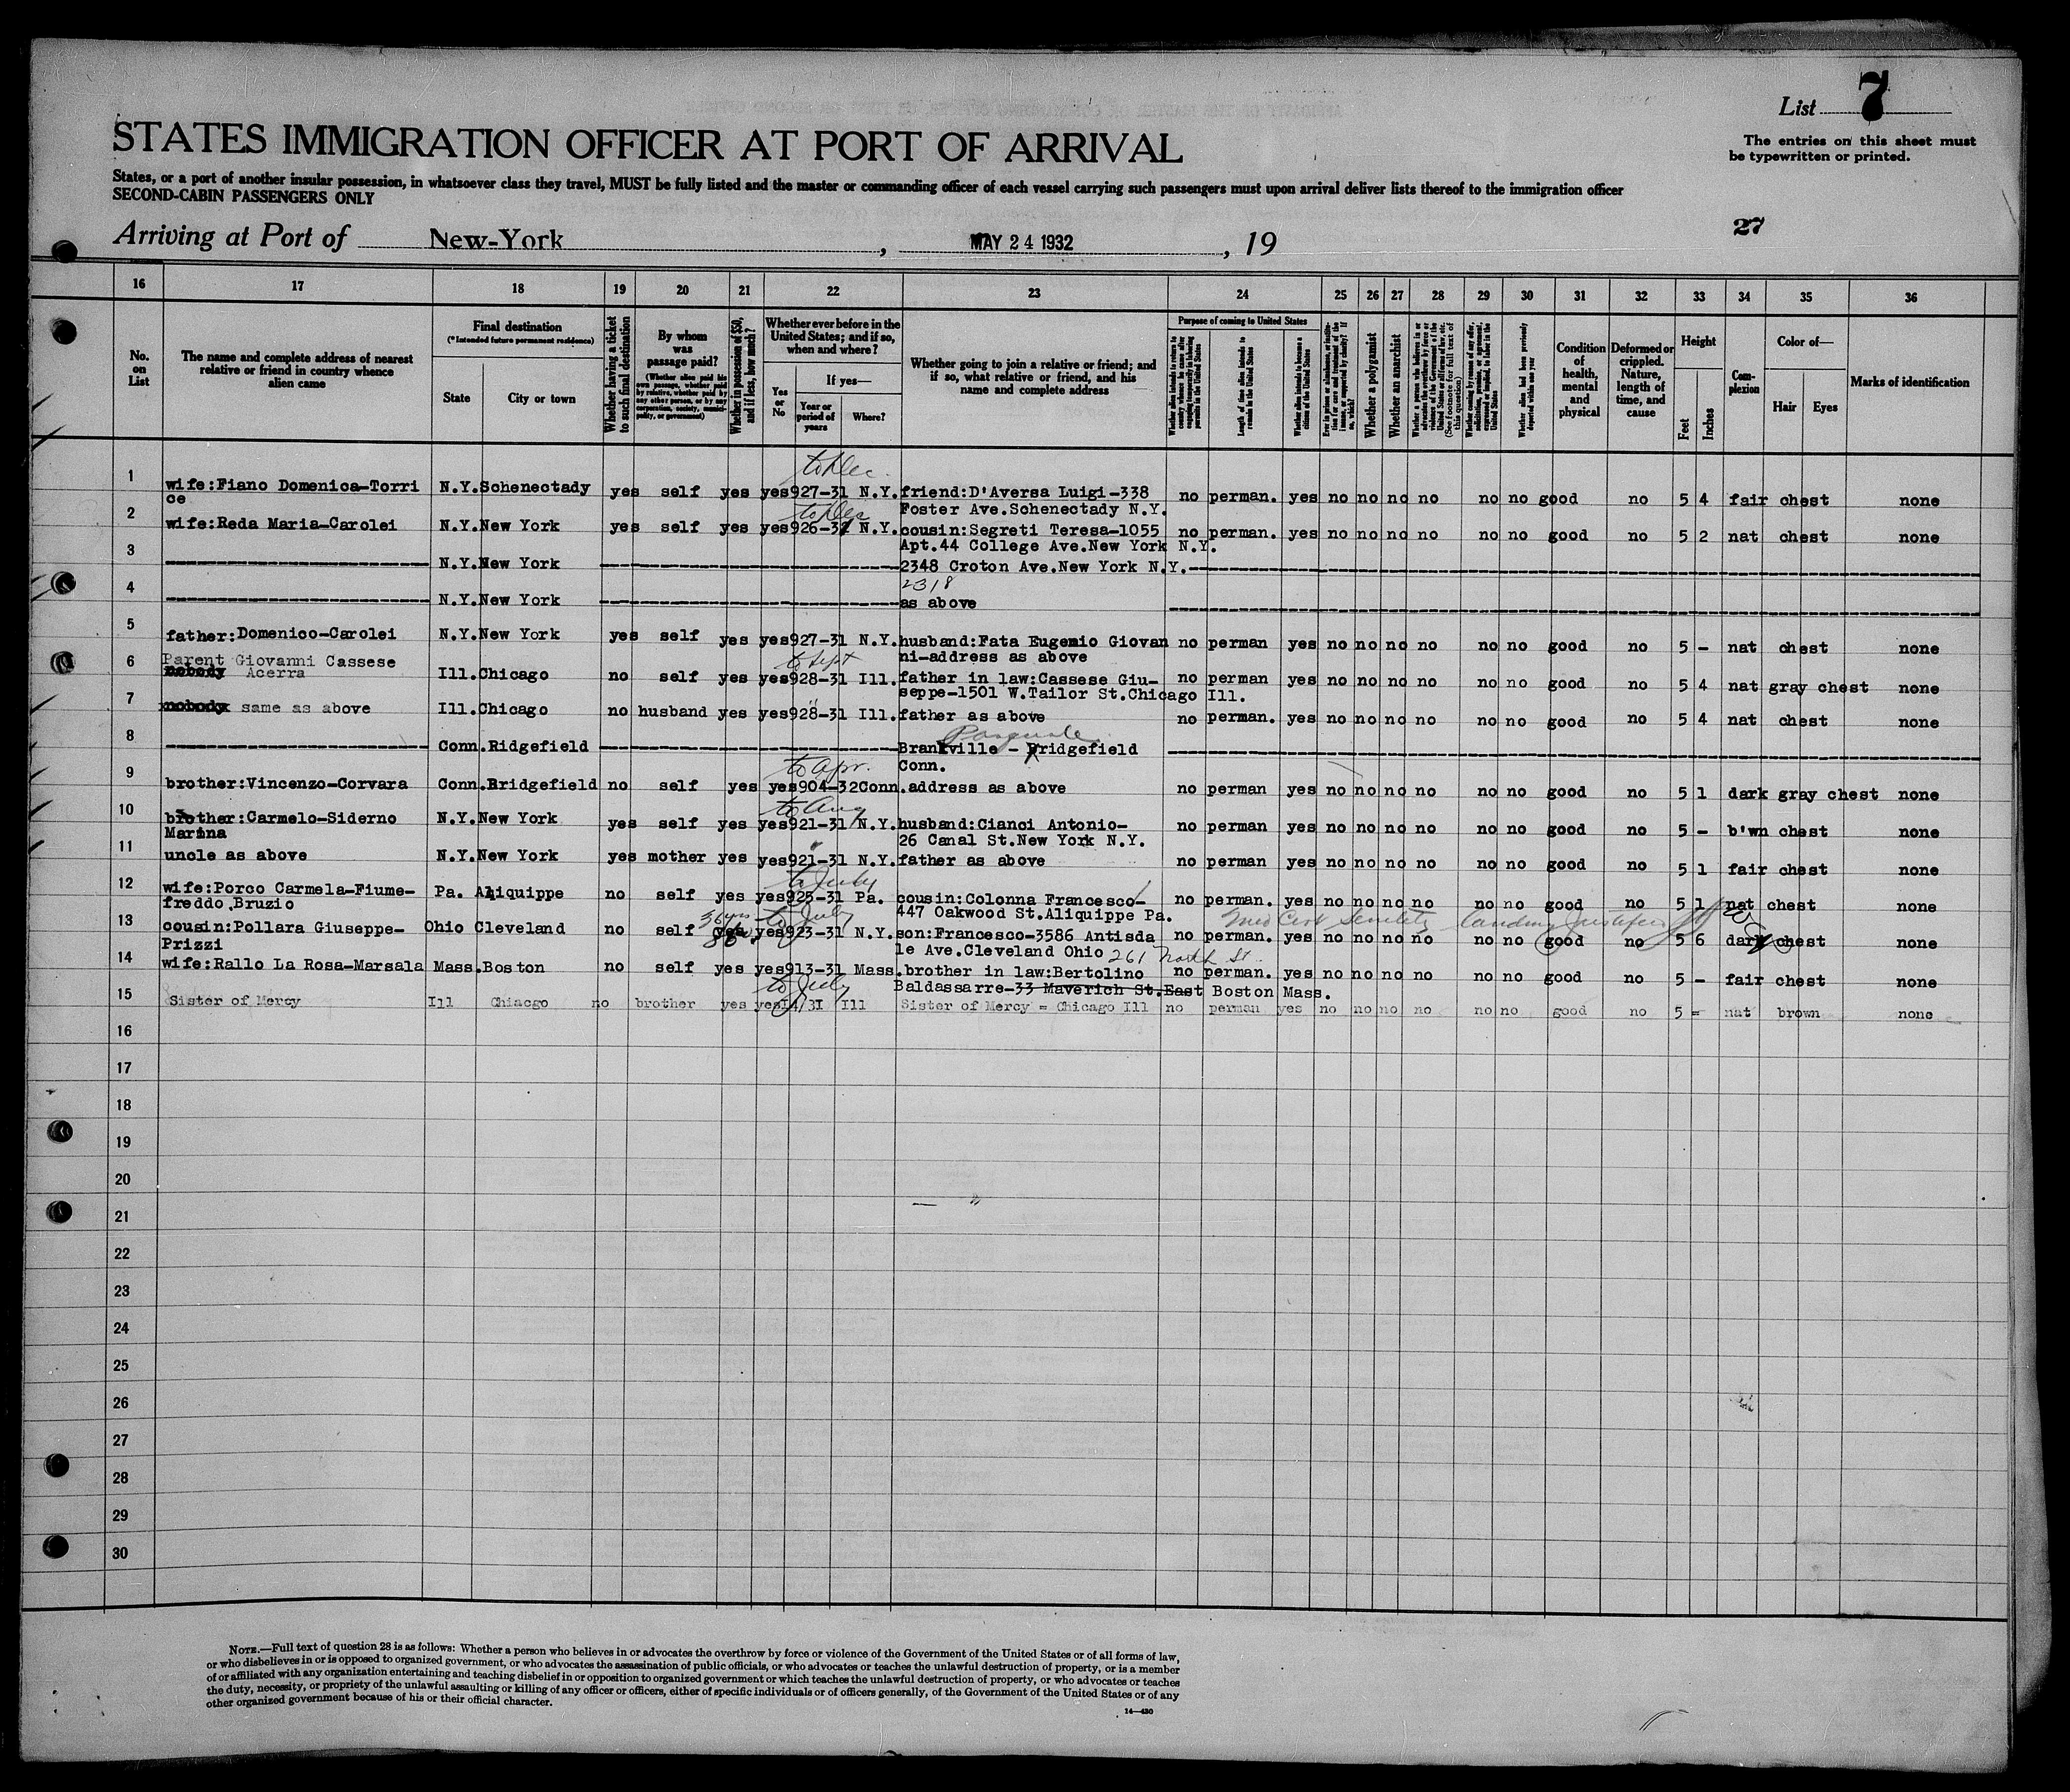 List 7
The entries on this sheet must
be typewritten or printed.
STATES IMMIGRATION OFFICER AT PORT OF ARRIVAL
States, or a port of another insular possession, in whatsoever class they travel, MUST be fully listed and the master or commanding officer of each vessel carrying such passengers must upon arrival deliver lists thereof to the immigration officer
SECOND-CABIN PASSENGERS ONLY
27
Arriving at Port of New-York, MAY 24 1932, 19
16 17 18 19 20 21 22 23 24 25 26 27 28 29 30 31 32 33 34 35 36
No. on List
The name and complete address of nearest relative or friend in country whence alien came
Final destination
(*Intended future permanent residence)
State
City or town
Whether having a ticket to such final destination
By whom was passage paid?
(Whether alien paid his own passage, whether paid by relative, whether paid by any other person, or by any corporation, society, municipality, or government)
Whether in possession of $50, and if less, how much?
Whether ever before in the United States; and if so, when and where?
Yes or No
If yes—
Year or period of years
Where?
Whether going to join a relative or friend; and if so, what relative or friend, and his name and complete address
Purpose of coming to United States
Length of time alien intends to remain in the United States
Whether alien intends to become a citizen of the United States
Whether a polygamist
Whether an anarchist
Condition of health, mental and physical
Deformed or crippled. Nature, length of time, and cause
Height
Feet
Inches
Complexion
Color of—
Hair
Eyes
Marks of identification
to Dec.
1 wife:Fiano Domenica-Torri N.Y. Schenectady yes self yes yes 927-31 N.Y. friend:D'Aversa Luigi-338 no perman. yes no no no no no no good no 5 4 fair chest none
ce Foster Ave.Schenectady N.Y.
to Dec
2 wife:Reda Maria-Carolei N.Y. New York yes self yes yes 926-31 N.Y. cousin:Segreti Teresa-1055 no perman. yes no no no no no no good no 5 2 nat chest none
Apt.44 College Ave.New York N.Y.
3 N.Y. New York 2348 Croton Ave.New York N.Y.
2318
4 N.Y. New York as above
5 father:Domenico-Carolei N.Y. New York yes self yes yes 927-31 N.Y. husband:Fata Eugenio Giovan no perman yes no no no no no no good no 5 - nat chest none
ni-address as above
Parent Giovanni Cassese to Sept
6 nobody Acerra Ill. Chicago no self yes yes 928-31 Ill. father in law:Cassese Giu- no perman yes no no no no no no good no 5 4 nat gray chest none
seppe-1501 W.Tailor St.Chicago Ill.
7 nobody same as above Ill. Chicago no husband yes yes 928-31 Ill. father as above no perman. yes no no no no no no good no 5 4 nat chest none
Pasquale
8 Conn. Ridgefield Brankville - Bridgefield
Conn.
to Apr.
9 brother:Vincenzo-Corvara Conn. Bridgefield no self yes yes 904-32 Conn. address as above no perman yes no no no no no no good no 5 1 dark gray chest none
to Aug
10 brother:Carmelo-Siderno N.Y. New York yes self yes yes 921-31 N.Y. husband:Cianci Antonio- no perman yes no no no no no no good no 5 - b'wn chest none
Marina 26 Canal St.New York N.Y.
11 uncle as above N.Y. New York yes mother yes yes 921-31 N.Y. father as above no perman yes no no no no no no good no 5 1 fair chest none
to July
12 wife:Porco Carmela-Fiume- Pa. Aliquippe no self yes yes 925-31 Pa. cousin:Colonna Francesco- no perman. yes no no no no no no good no 5 1 nat chest none
freddo Bruzio 447 Oakwood St.Aliquippe Pa.
to July Med Cert Senility landing
13 cousin:Pollara Giuseppe- Ohio Cleveland no self yes yes 923-31 N.Y. son:Francesco-3586 Antisda no perman. yes no no no no no no good no 5 6 dark chest none
Prizzi le Ave.Cleveland Ohio 261 North St.
14 wife:Rallo La Rosa-Marsala Mass. Boston no self yes yes 913-31 Mass. brother in law:Bertolino no perman. yes no no no no no no good no 5 - fair chest none
Baldassarre-33 Maverich St.East Boston Mass.
to July
15 Sister of Mercy Ill Chiacgo no brother yes yes 14/31 Ill Sister of Mercy = Chicago Ill no perman yes no no no no no no good no 5 = nat brown none
16
17
18
19
20
21
22
23
24
25
26
27
28
29
30
NOTE.—Full text of question 28 is as follows: Whether a person who believes in or advocates the overthrow by force or violence of the Government of the United States or of all forms of law,
or who disbelieves in or is opposed to organized government, or who advocates the assassination of public officials, or who advocates or teaches the unlawful destruction of property, or is a member
of or affiliated with any organization entertaining and teaching disbelief in or opposition to organized government or which teaches the unlawful destruction of property, or who advocates or teaches
the duty, necessity, or propriety of the unlawful assaulting or killing of any officer or officers, either of specific individuals or of officers generally, of the Government of the United States or of any
other organized government because of his or their official character.
14—430